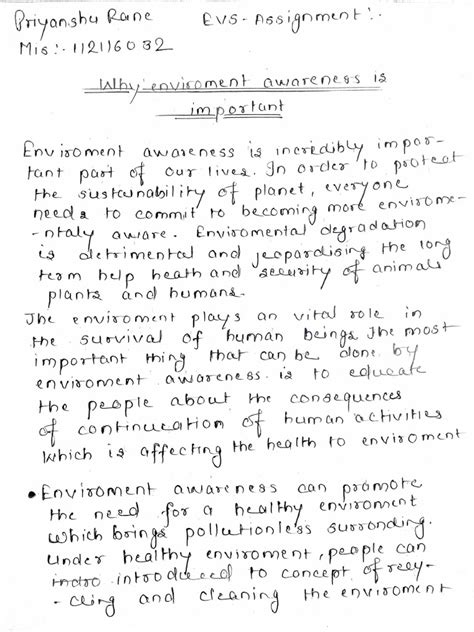 Priyanshu Rane EVS-Assignment:-
Mis:- 112116032
Why enviroment awareness is
important
Enviroment awareness is incredibly impor-
tant part of our lives. In order to protect
the sustainability of planet, everyone
needs to commit to becoming more envirome-
-ntaly aware. Enviromental degradation
is detrimental and jeopardising the long
term help heath and security of animals
plants and humans.
The enviroment plays an vital role in
the survival of human beings. The most
important thing that can be done by
enviroment awareness is to educate
the people about the consequences
of continucation of human activities
which is affecting the health to enviroment
• Enviroment awareness can promote
the need for a healthy enviroment
which brings pollutionless surronding.
Under healthy enviroment, people can
intro introduced to concept of recy-
-cling and cleaning the enviroment